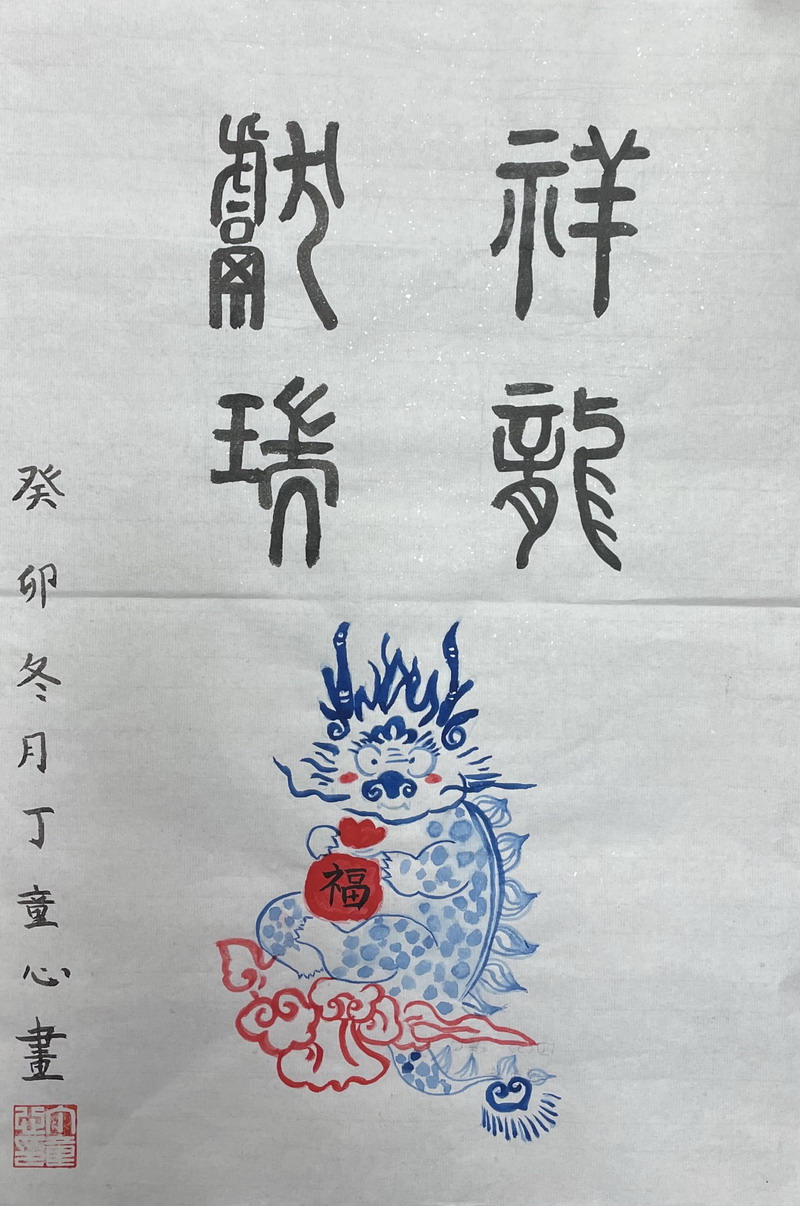 祥龍
獻瑞
福
癸卯冬月丁童心畫